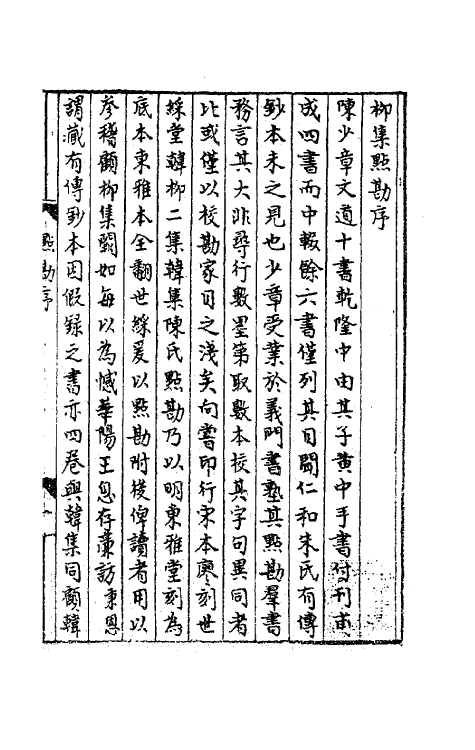 柳集點勘序
陳少章文道十書乾隆中由其子黃中手書付刊甫
成四書而中輟餘六書僅列其目聞仁和朱氏有傳
鈔本未之見也少章受業於義門書塾其點勘羣書
務言其大非尋行數墨第取數本校其字句異同者
比或僅以校勘家目之淺矣向嘗印行宋本廖刻世
綵堂韓柳二集韓集陳氏點勘乃以明東雅堂刻為
底本東雅本全翻世綵爰以點勘附後俾讀者用以
參稽顧柳集闕如每以為憾華陽王息存藁訪東恩
謂藏有傳鈔本因假錄之書亦四卷與韓集同顧韓
點勘序
一